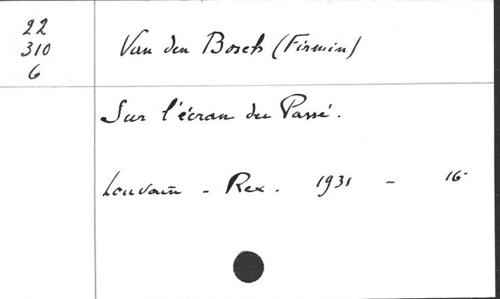 22
310
6
Van den Bosch (Firmin)
Sur l'écran du Passé.
Louvain - Rex. 1931 - 16°